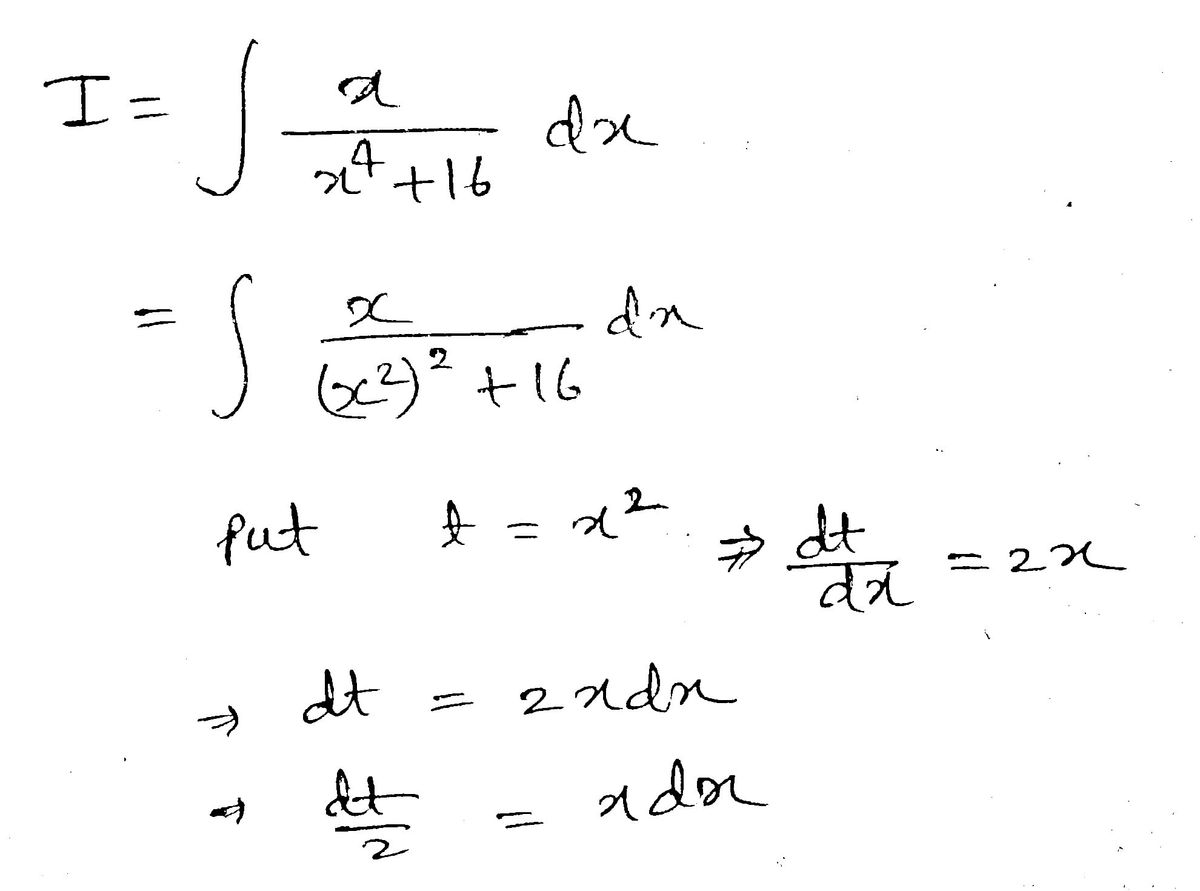 I = ∫ x / (x⁴ + 16) dx
= ∫ x / ((x²)² + 16) dx
put t = x² ⇒ dt/dx = 2x
⇒ dt = 2x dx
⇒ dt/2 = x dx